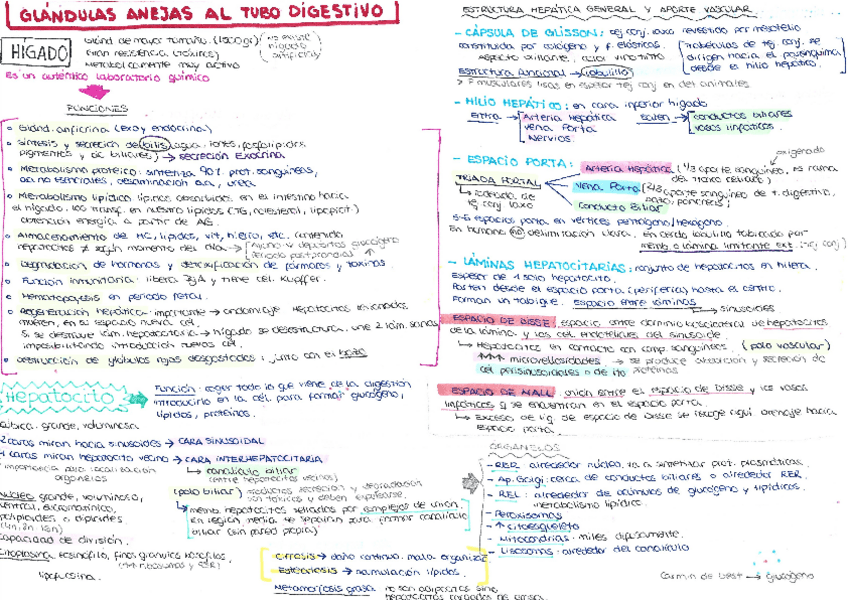 GLÁNDULAS ANEJAS AL TUBO DIGESTIVO
HIGADO
Gland. de mayor tamaño. (1500gr)
Gran resistencia
Metabolicamente muy activo
Es un auténtico laboratorio químico
FUNCIONES
Gland. anficrina (exo y endocrina)
Síntesis y secreción de bilis (agua, iones, fosfolípidos,
pigmentos y ác biliares) → secreción exocrina
Metabolismo proteico: sintetiza 90% prot. sanguíneas,
aa no esenciales, desaminación aa, urea
Metabolismo lipídico: lípidos absorbidos en el intestino hacia
el hígado, los transf. en nuestros lípidos (TG, colesterol, lipoprot.)
obtención energía a partir de AG.
Almacenamiento de HC, lípidos, vit, hierro, etc. contenido
hepatocitos ≠ según momento del día
Degradación de hormonas y detoxificación de fármacos y toxinas
Función inmunitaria: libera IgA y tiene cél. Kupffer.
Hematopoyesis en periodo fetal.
Regeneración hepática: importante → andamiaje. Hepatocitos lesionados
mueren, en su espacio nueva cél.
Si se destruye lám. hepatocitaria → hígado se desestructura, une 2 lám. sanas
imposibilitando introducción nuevas cél.
Destrucción de glóbulos rojos desgastados: junto con el bazo
Hepatocito
Función: coger todo lo que viene de la digestión
introducirlo en la cél. para formar glucógeno,
lípidos, proteínas.
Cúbica, grande, voluminosa
2 caras miran hacia sinusoides → CARA SINUSOIDAL
4 caras miran hepatocito vecino → CARA INTERHEPATOCITARIA
importancia para localización
orgánulos
canalículo biliar
(entre hepatocitos vecinos)
(polo biliar)
productos secreción y degradación
son tóxicos y deben expulsarse.
memb. hepatocitos sellados por complejos de unión.
En región media se separan para formar canalículo
biliar (sin pared propia)
Núcleo: grande, voluminoso,
central, eucromatínico,
poliploides o diploides
Capacidad de división.
Citoplasma: eosinófilo, finos gránulos basófilos,
lipofuscina.
Cirrosis → daño continuo. mala organizac.
Esteatosis → acumulación lípidos.
Metamorfosis grasa: no son adipocitos sino
hepatocitos cargados de grasa.
ESTRUCTURA HEPÁTICA GENERAL Y APORTE VASCULAR
- CÁPSULA DE GLISSON: tej. conj. laxo revestido por mesotelio
constituida por colágeno y f. elásticas.
aspecto brillante, color vinotinto
trabéculas de tej. conj. se
dirigen hacia el parénquima
desde el hilio hepático.
Estructura funcional → lobulillo
> F. musculares lisas en espesor tej. conj. en det. animales.
- HILIO HEPÁTICO: en cara inferior hígado
Entra → Arteria Hepática
Vena Porta
Nervios.
Salen → conductos biliares
vasos linfáticos.
- ESPACIO PORTA:
TRIADA PORTAL
rodeado de
tej. conj. laxo
Arteria Hepática (1/3 aporte sanguíneo, es rama
del tronco celíaco)
oxigenado
Vena Porta (2/3 aporte sanguíneo de t. digestivo,
bazo, páncreas)
Conducto Biliar
5-6 espacios porta en vértices pentágono/hexágono
En humano no delimitación clara, en cerdo lobulillo tabicado por
memb. o lámina limitante ext. (tej conj)
- LÁMINAS HEPATOCITARIAS: conjunto de hepatocitos en hilera.
Espesor de 1 solo hepatocito.
Parten desde el espacio porta (periferia) hasta el centro.
Forman un tabique. espacio entre láminas → sinusoides
ESPACIO DE DISSE: espacio entre dominio basolateral de hepatocitos
de la lámina y las cél. endoteliales del sinusoide.
↳ Hepatocitos en contacto con comp. sanguíneos. (polo vascular)
↑↑↑↑ microvellosidades → se produce absorción y secreción de
cél perisinusoidales o de Ito proteínas
ESPACIO DE MALL: unión entre el espacio de Disse y los vasos
linfáticos q se encuentran en el espacio porta.
↳ Exceso de líq. de espacio de Disse se recoge aquí, drenaje hacia
espacio porta.
ORGÁNULOS
- RER: alrededor núcleo, va a sintetizar prot. plasmáticas.
- Ap. Golgi: cerca de conductos biliares o alrededor RER.
- REL: alrededor de acúmulos de glucógeno y lipídicos.
metabolismo lipídico
- Peroxisomas
- ↑ citoesqueleto
- Mitocondrias: miles difusamente.
- Lisosomas: alrededor del canalículo
Carmín de Best → glucógeno